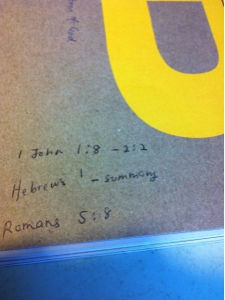 1 John 1:8 - 2:2
Hebrews 1 - summary
Romans 5:8